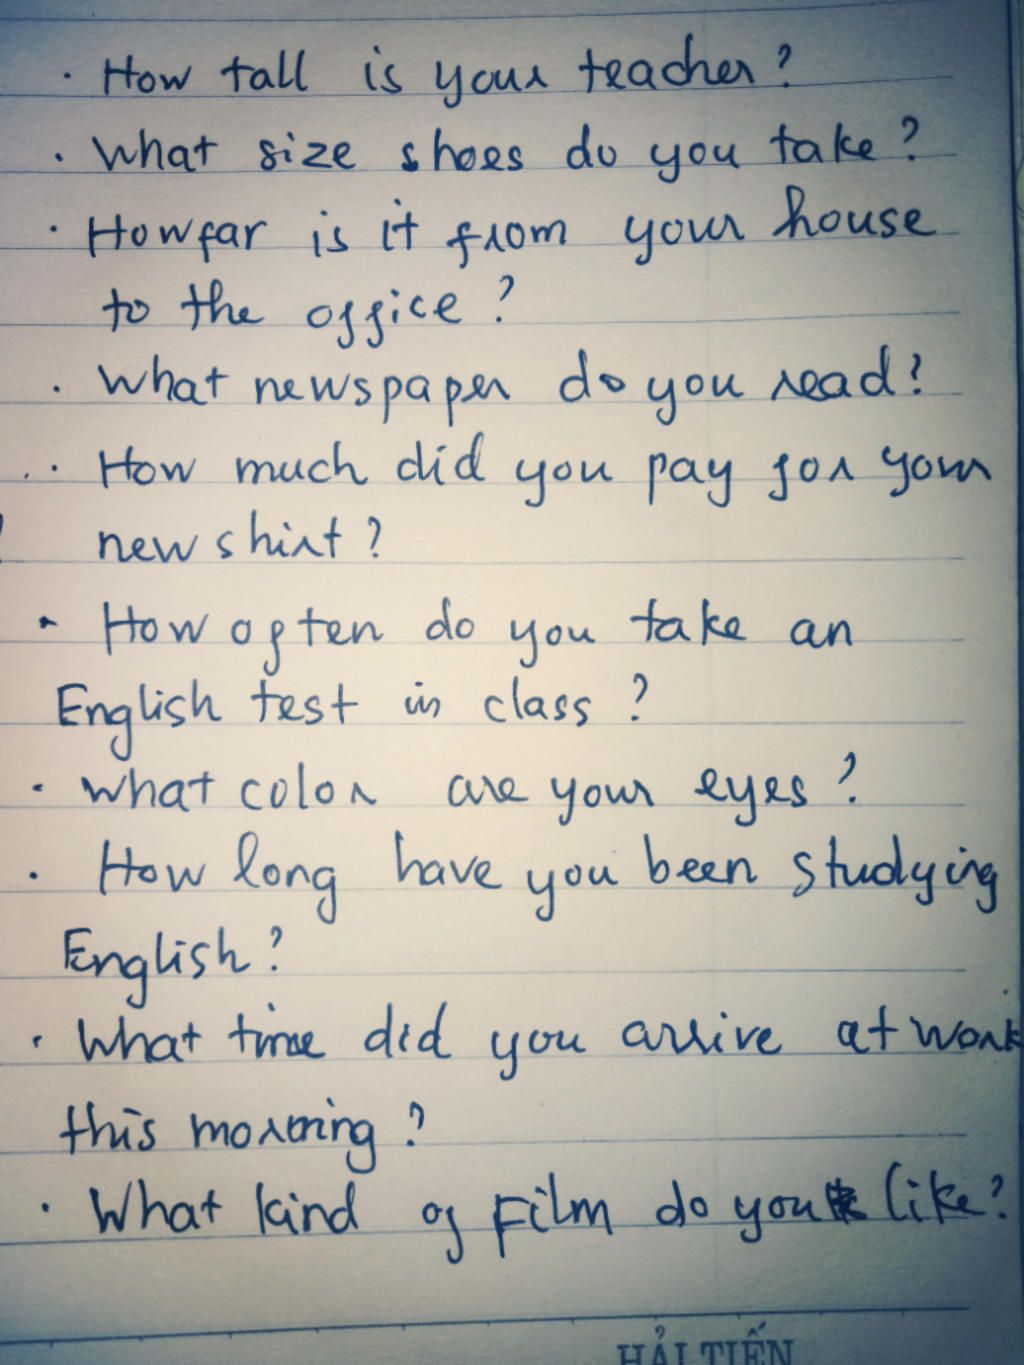 · How tall is your teacher?
· What size shoes do you take?
· How far is it from your house
to the office?
· What newspaper do you read?
· How much did you pay for your
new shirt?
· How often do you take an
English test in class?
· What color are your eyes?
· How long have you been studying
English?
· What time did you arrive at work
this morning?
· What kind of Film do you like?
HẢI TIẾN